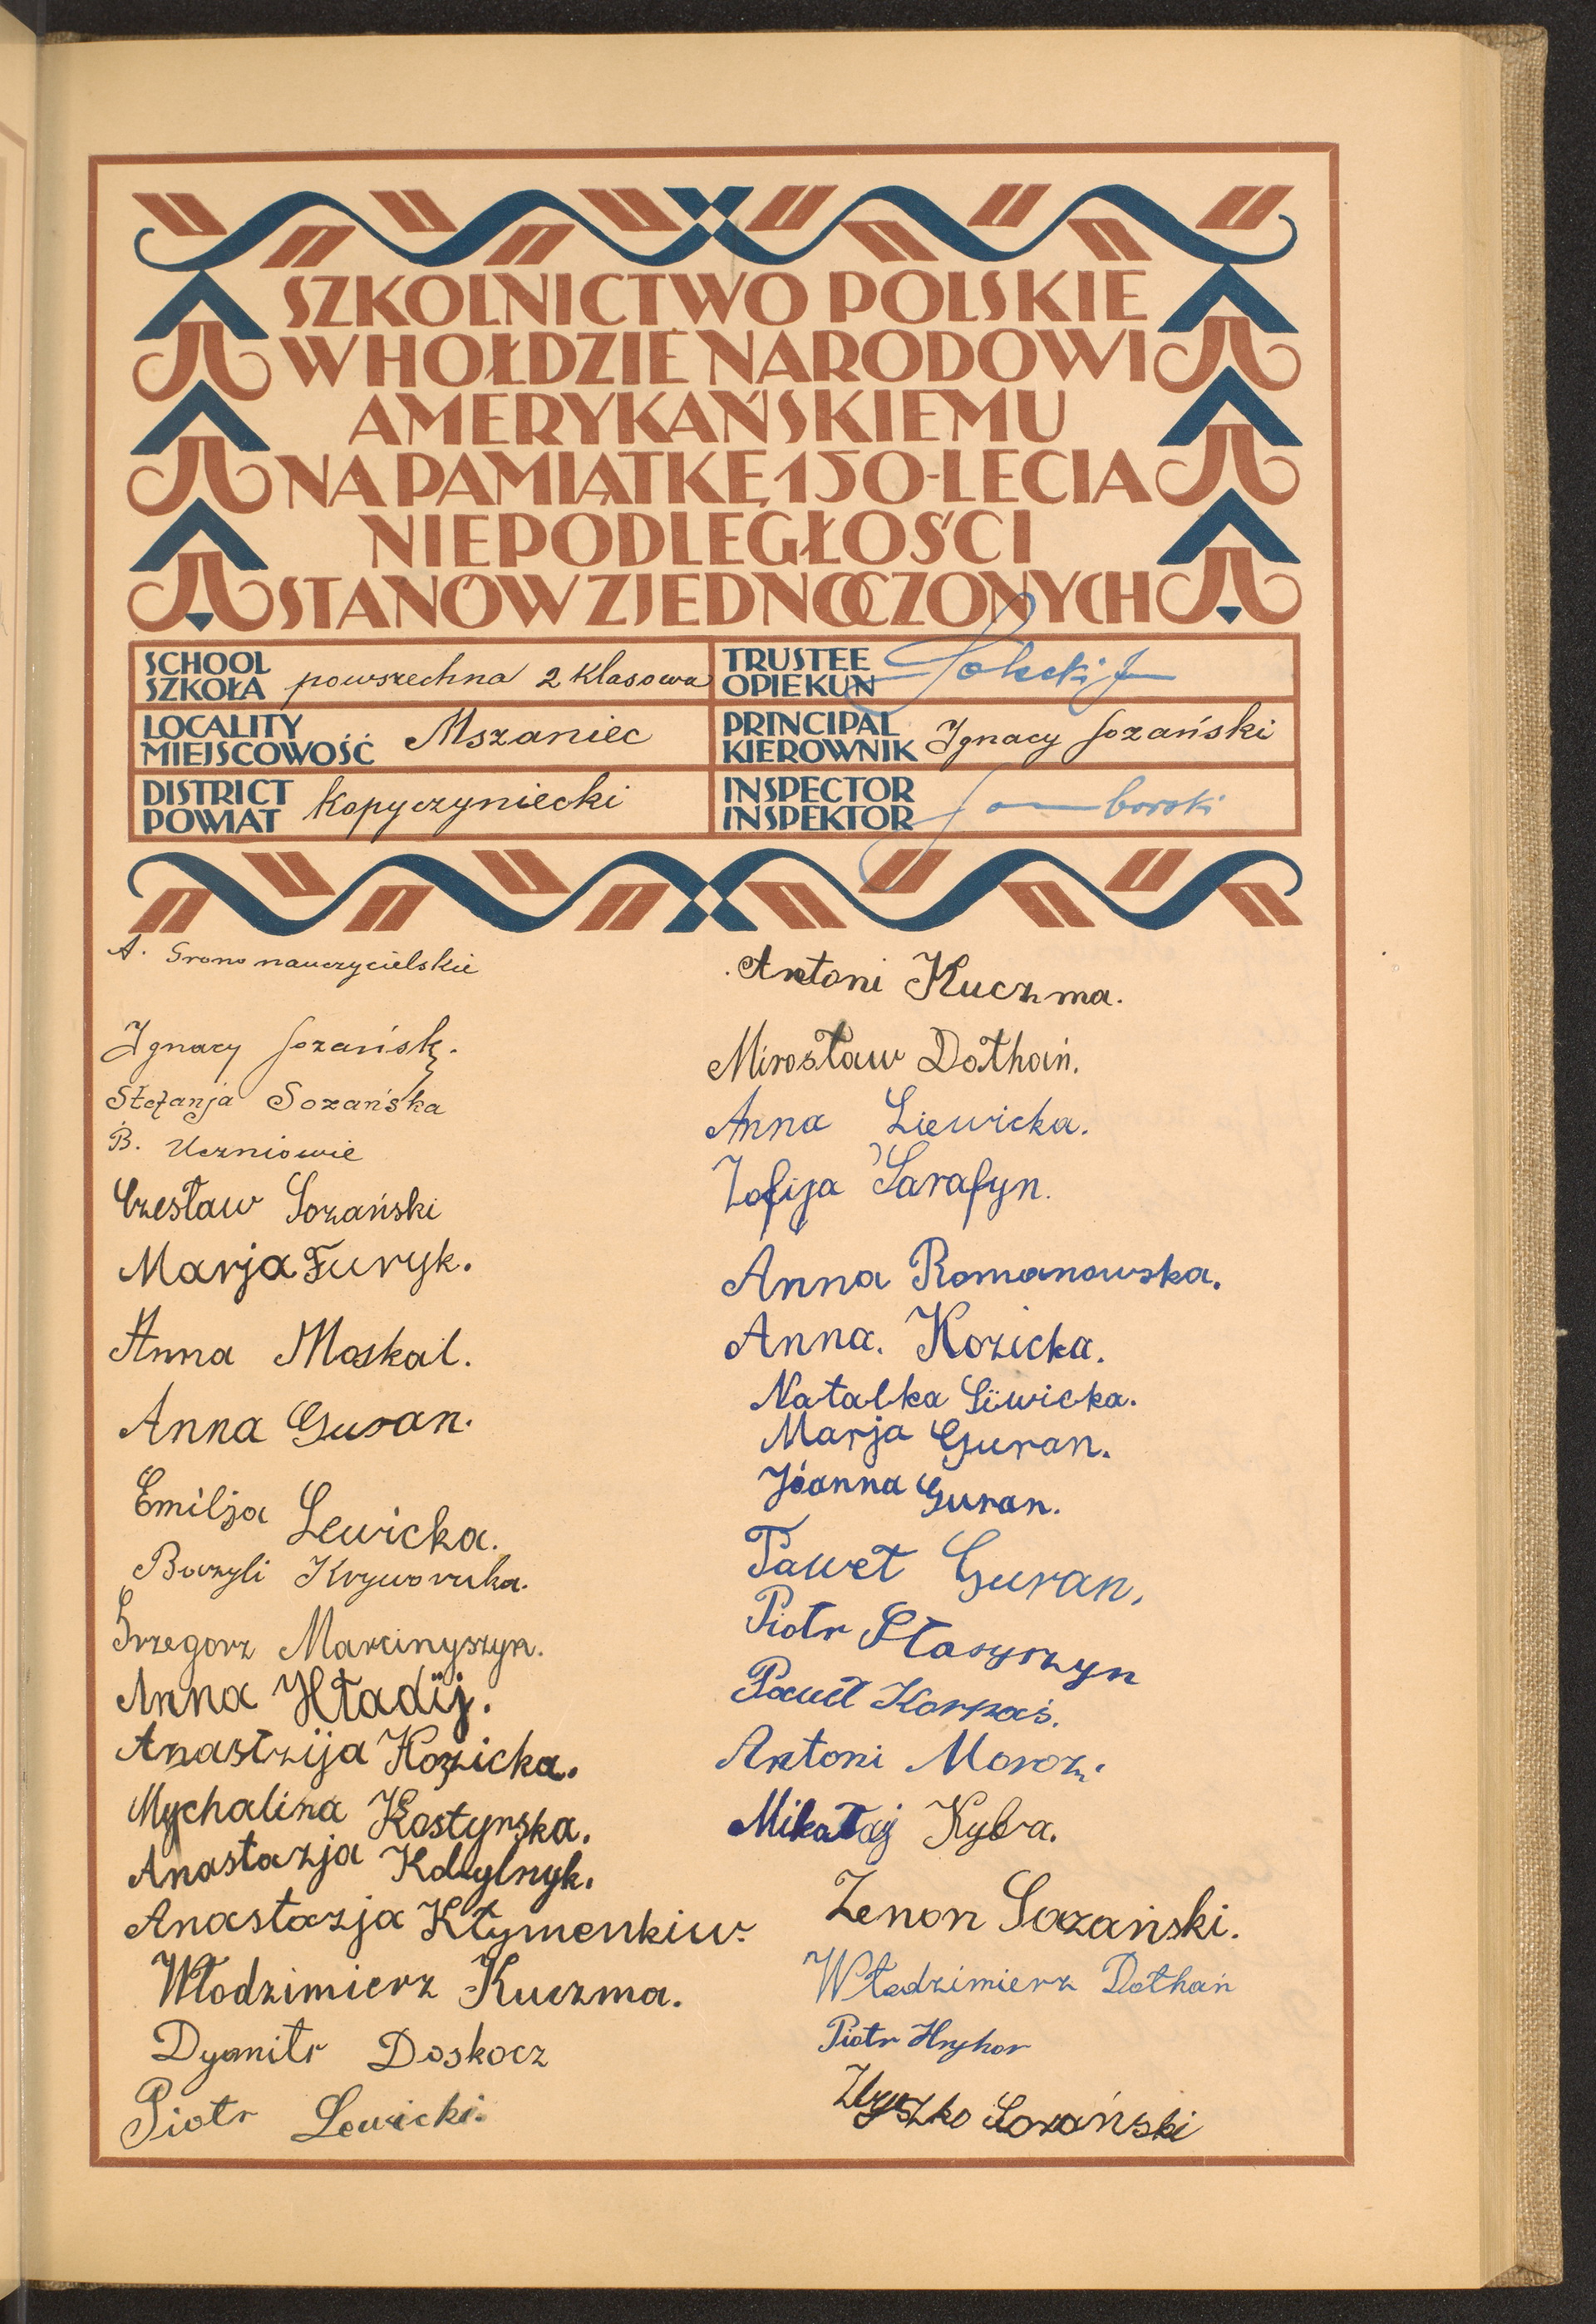 SZKOLNICTWO POLSKIE
W HOŁDZIE NARODOWI
AMERYKAŃSKIEMU
NA PAMIĄTKĘ 150-LECIA
NIEPODLEGŁOŚCI
STANÓW ZJEDNOCZONYCH
SCHOOL
SZKOŁA
powszechna 2 klasowa
TRUSTEE
OPIEKUN
LOCALITY
MIEJSCOWOŚĆ
Mszaniec
PRINCIPAL
KIEROWNIK
Ignacy Sozański
DISTRICT
POWIAT
Kopyczyniecki
INSPECTOR
INSPEKTOR
Samborski
A. Grono nauczycielskie
Ignacy Sozański.
Stefanja Sozańska
B. Uczniowie
Czesław Sozański
Marja Furyk.
Anna Moskal.
Anna Guran.
Emilja Lewicka.
Bazyli Kryworuka.
Grzegorz Marcinyszyn.
Anna Hładij.
Anastzija Kozicka.
Mychalina Kostyrska.
Anastazja
Anastazja Kłymenkiw.
Włodzimierz Kuczma.
Dymitr Doskocz
Piotr Lewicki.
Antoni Kuczma.
Mirosław Dołhań.
Anna Liewicka.
Zofija Sarafyn.
Anna Romanowska.
Anna. Kozicka.
Natalka Liwicka.
Marja Guran.
Joanna Guran.
Paweł Guran.
Piotr Stasyszyn
Paweł Karpaś.
Antoni Moroz.
Mikołaj Kybra.
Zenon Sozański.
Włodzimierz Dołhań
Piotr Hryhor
Zbyszko Sozański